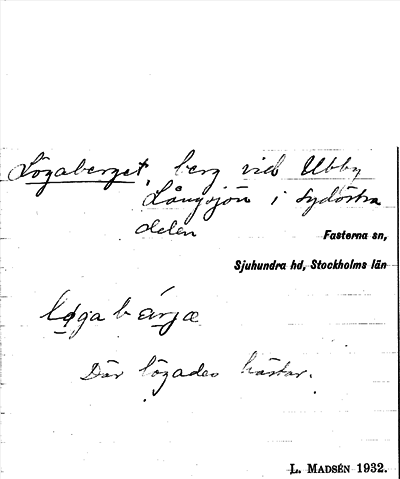 Lögaberget, berg vid Ubby
Långsjön i sydöstra
delen
Fasterna sn,
Sjuhundra hd, Stockholms län
lø̀gabærjæ
Där lögades hästar.
L. Madsén 1932.